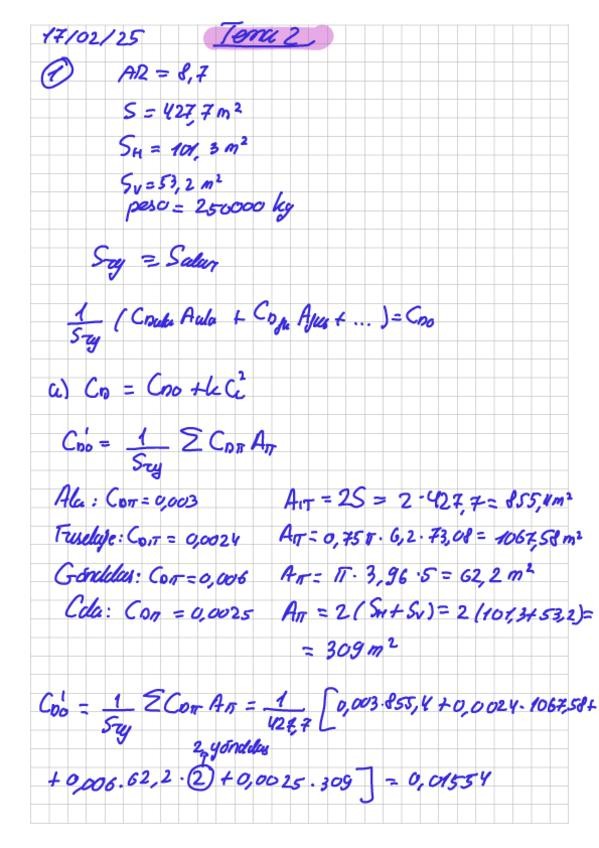 17/02/25 Tema 2
① AR = 8,7
S = 427,7 m²
S_H = 101,3 m²
S_V = 53,2 m²
peso = 250000 kg
S_ref ≡ S_alar
1/S_ref (C_Dala A_ala + C_Dfus A_fus + ...) = C_D0
a) C_D = C_D0 + k C_L²
C_D0' = 1/S_ref Σ C_Dπ A_π
Ala: C_Dπ = 0,003 A_π = 2S = 2·427,7 = 855,4 m²
Fuselaje: C_Dπ = 0,0024 A_π = 0,75π·6,2·73,08 = 1067,58 m²
Góndolas: C_Dπ = 0,006 A_π = π·3,96·5 = 62,2 m²
Cola: C_Dπ = 0,0025 A_π = 2(S_H + S_V) = 2(101,3+53,2) =
= 309 m²
C_D0' = 1/S_ref Σ C_Dπ A_π = 1/427,7 [0,003·855,4 + 0,0024·1067,58 +
2 góndolas
+ 0,006·62,2·② + 0,0025·309] = 0,01554